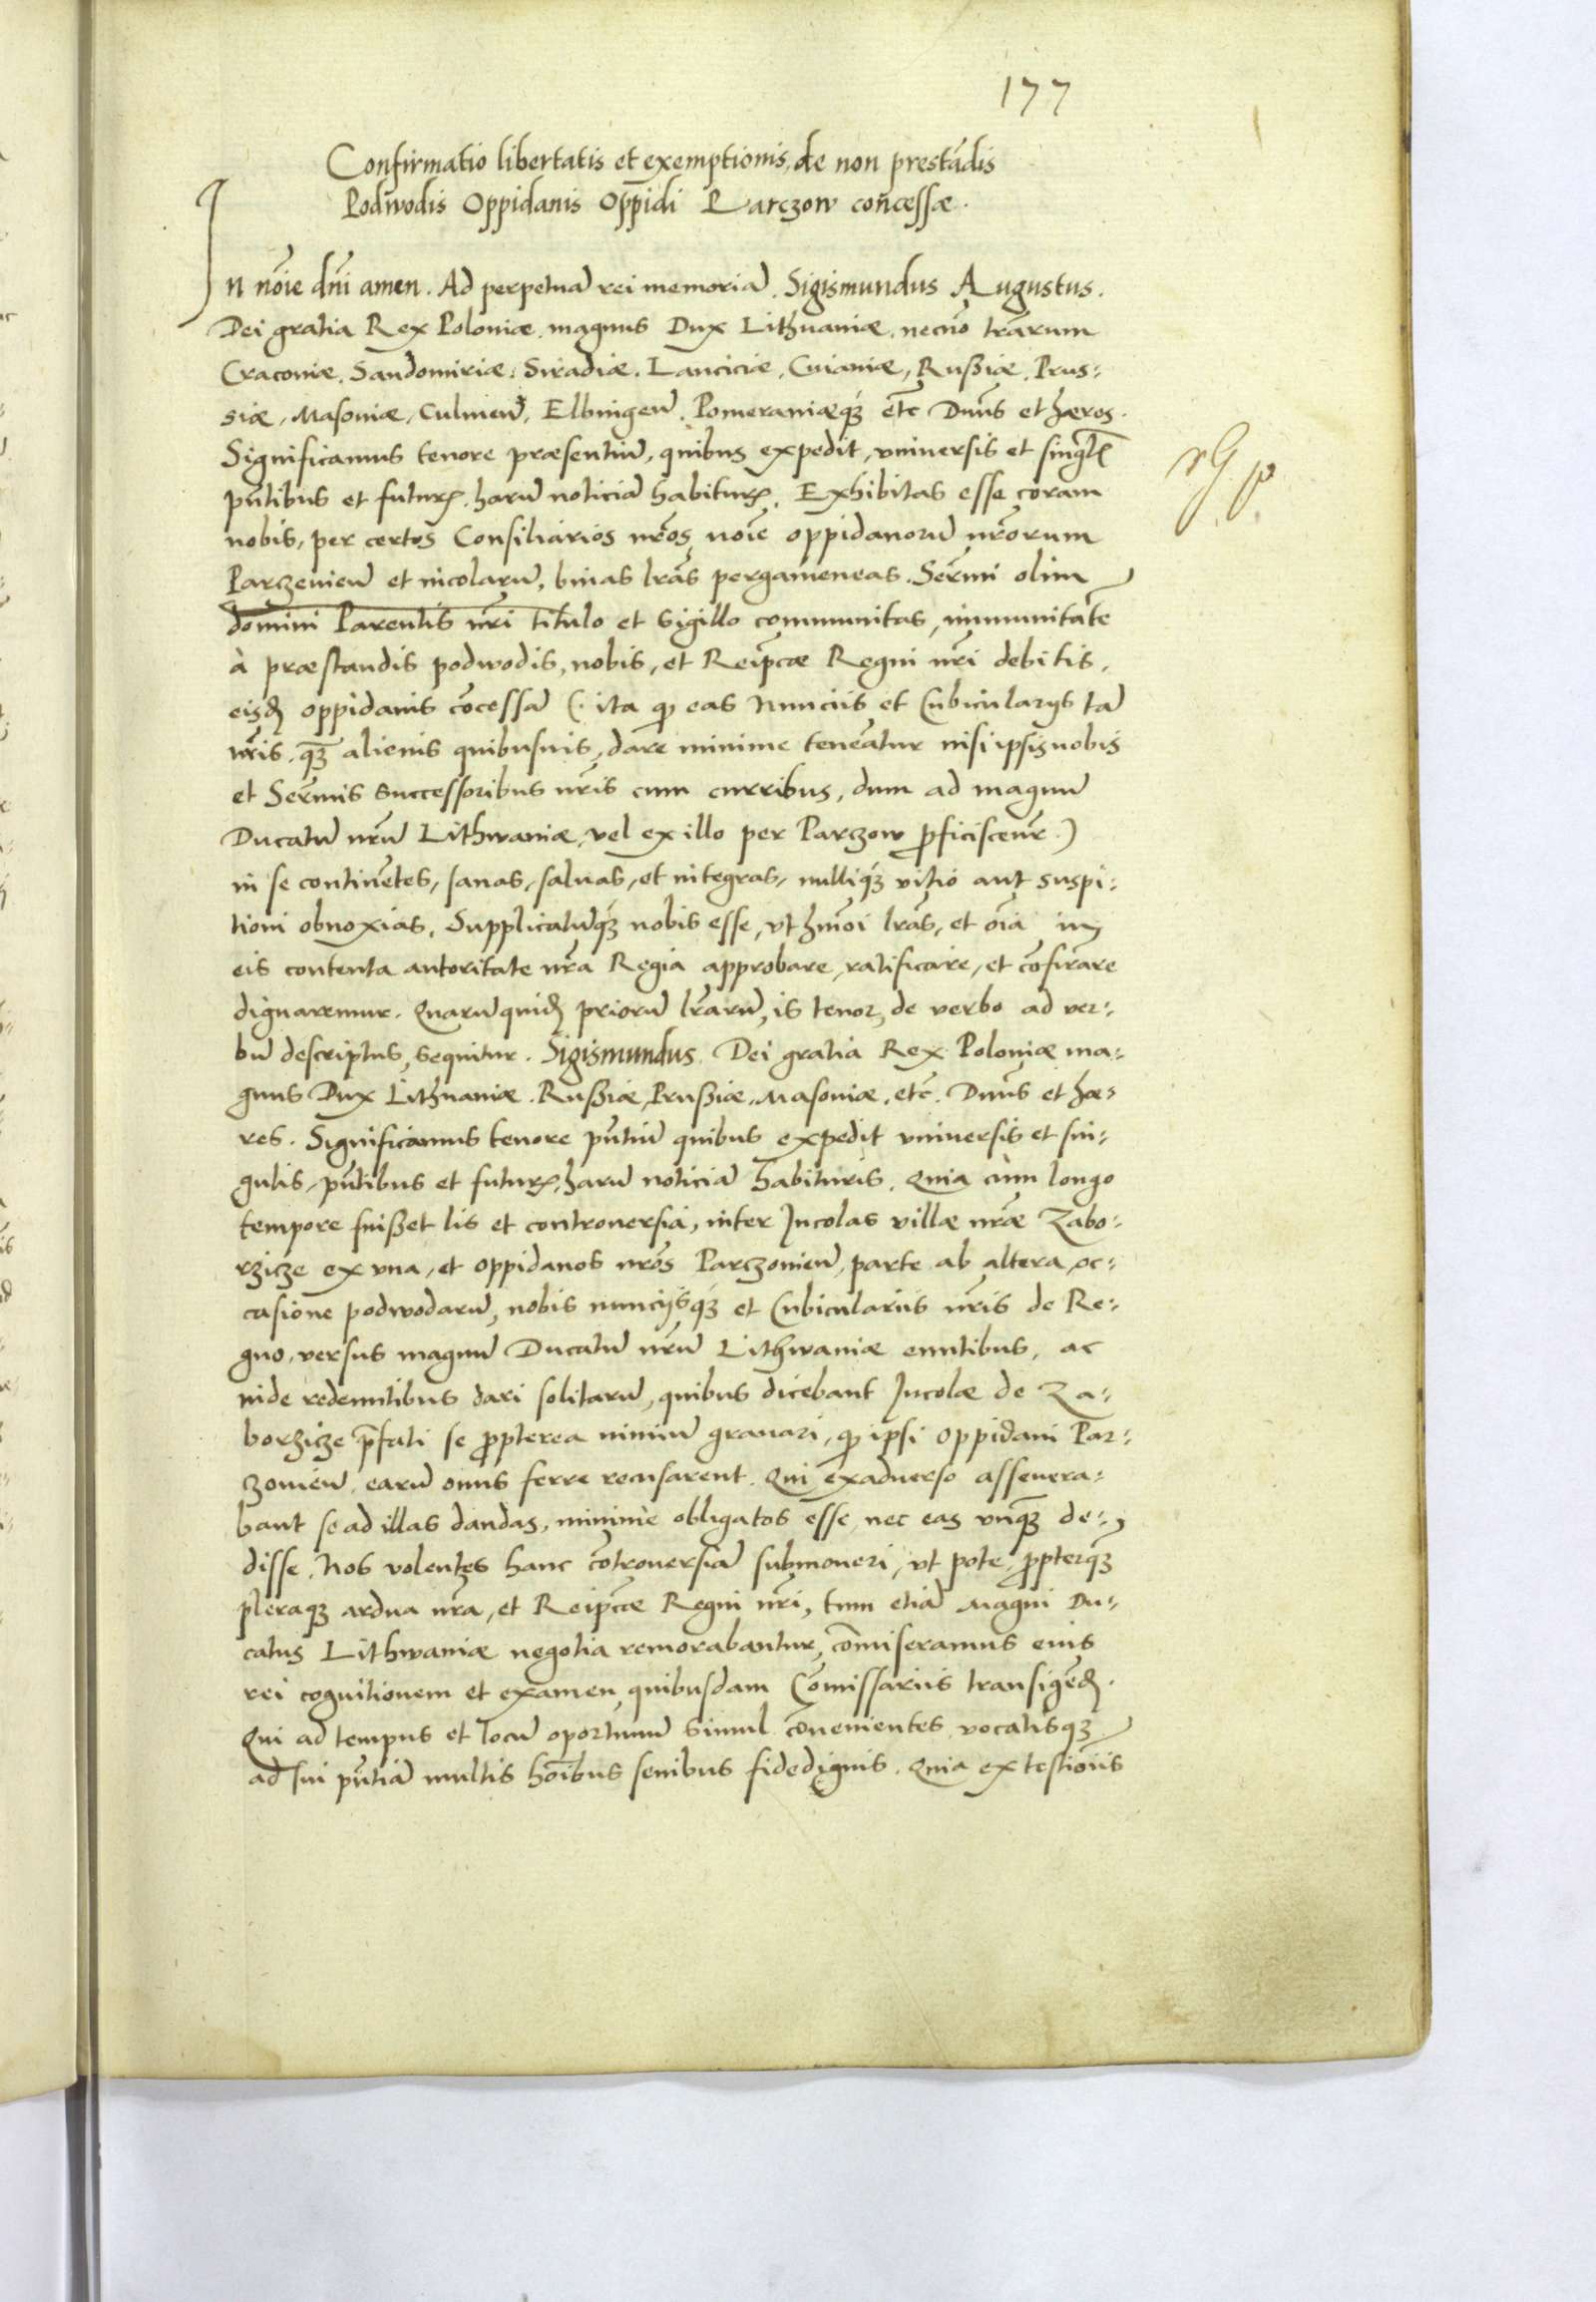 177
Confirmatio libertatis et exemptionis, de non prestādis
Podwodis Oppidanis Oppidi Parczow concessæ.
In nōie dn̄i amen. Ad perpetuā rei memoriā. Sigismundus Augustus.
Dei gratia Rex Poloniæ. magnus Dux Lithuaniæ. necnō tr̄arum
Cracoviæ. Sandomiriæ. Siradiæ. Lanciciæ. Cuiaviæ, Rußiæ. Prus:
siæ, Masoviæ, Culmeñ, Elbingeñ. Pomeraniæq́ꝫ etc̄ Dn̄us et hæres.
Significamus tenore præsentiū, quibus expedit, vniuersis et singl̄
pn̄tibus et futurꝭ. harū noticiā habiturꝭ. Exhibitas esse coram
nobis, per certos Consiliarios nr̄os nōie oppidanorū nr̄orum
Parczovieñ et incolarū, binas lr̄as pergameneas. Ser̄mi olim
domini Parentis nr̄i titulo et Sigillo communitas, immunitatē
à præstandis podwodis, nobis, et Reip̄cæ Regni nr̄i debitis,
eisđ oppidanis cōcessā (. ita ꝙ eas Nunciis et Cubicularijs tā
nr̄is. qꝫ̄ alienis quibusuis, dare minime teneātur nisi ipsis nobis
et Ser̄mis successoribus nr̄is cum curribus, dum ad magnū
Ducatū nr̄ū Lithwaniæ, vel ex illo per Parczow ꝓficiscent̄r.)
in se continētes, sanas, saluas, et integras, nulliq́ꝫ vitio aut suspi:
tioni obnoxias. Supplicatūq́ꝫ nobis esse, vt hm̄oi lr̄as, et oīa in
eis contenta autoritate nr̄a Regia approbare, ratificare, et cōfir̄are
dignaremur. Quarū quiđ priorū lr̄arū, is tenor, de verbo ad ver:
bū descriptus, sequitur. Sigismundus. Dei gratia Rex Poloniæ ma:
gnus Dux Lithuaniæ. Rußiæ, Prußiæ, Masoviæ. etc̄. Dn̄us et hæ:
res. Significamus tenore pn̄tiū quibus expedit vniuersis et sin:
gulis, pn̄tibus et futurꝭ, harū noticiā habituris. Quia cùm longo
tempore fuißet lis et controuersia, inter Incolas villæ nr̄æ Zabo:
rzicze ex vna, et oppidanos nr̄os Parczovieñ, parte ab altera, oc:
casione podwodarū, nobis nuncijsq́ꝫ et Cubiculariis nr̄is de Re:
gno, versus magnū Ducatū nr̄ū Lithwaniæ euntibus, ac
inde redeuntibus dari solitarū, quibus dicebant Incolæ de Za:
borzicze p̄fati se ꝓpterea nimiū grauari, ꝙ ipsi oppidani Par:
zovieñ, earū onus ferre recusarent. Qui exaduerso asseuera:
bant se ad illas dandas, minimè obligatos esse, nec eas vnqꝫ̄ de:
disse. Nos volentes hanc cōtrouersiā submoueri, vt pote ꝓpterqꝫ̄
pleraqꝫ ardua nr̄a, et Reip̄cæ Regni nr̄i, tum etiā Magni Du:
catus Lithwaniæ negotia remorabantur, cōmiseramus euis
rei cognitionem et examen quibusdam Cōmissariis transigēđ.
Qui ad tempus et locū oportunū simul cōuenientes, vocatisqꝫ
ad sui pn̄tiā multis hōibus senibus fidedignis. Quia ex testiōiis